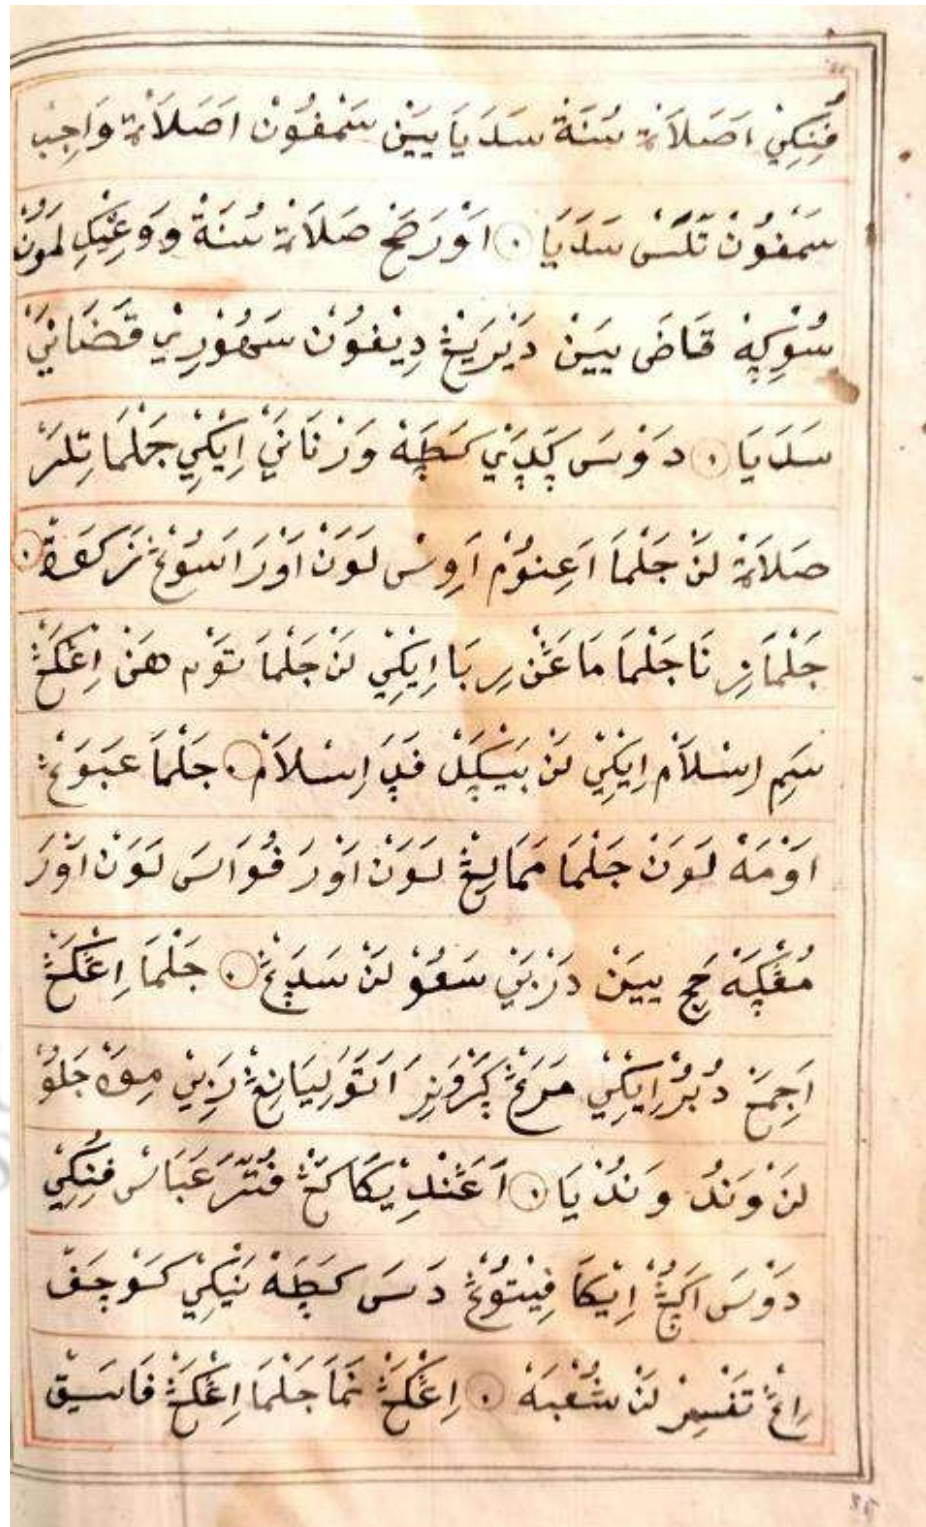 فُنِيْكِيْ اَصَلَاةْ سُنَةْ سَدَيَا يَيَنْ سَمْفُوْن اَصَلَاةْ وَاجِبْ
سَمْفُوْن تَلَسْ سَدَيَا ۞ اَوْرَ صَحْ صَلَاةْ سُنَةْ وَوَڠِيْكِ لَمَوْنْ
سُوْڮِيْهْ قَاضَى يَيَنْ دَيْرَيَڠْ دِيْفُوْن سَهُوْرِيْ قَضَانَيْ
سَدَيَا ۞ دَوْسَ ڮَدَيْ كَطَهْ وَرْنَانَيْ اِيْكِيْ جَلْمَا تِلَرْ
صَلَاةْ لَنْ جَلْمَا اَڠِنُوْمْ اَوِسْ لَوَنْ اَوْرَ اَسُوْڠْ زَكَةْ ۞
جَلْمَا زِنَا جَلْمَا مَاڠَنْ رِبَا اِيْكِيْ لَنْ جَلْمَا هَنْ اِڠْكَڠْ
اِسْلَامْ اِيْكِيْ لَنْ فَدَ اِسْلَامْ ۞ جَلْمَا عَبَوَڠْ
اَوْمَهْ لَوَنْ جَلْمَا مَمَالِڠْ لَوَنْ اَوْرَ فُوَاسَ لَوَنْ اَوْرَ
مُڠْڮَهْ حَجِ يَيَنْ دَرْبَيْ سَڠُوْ لَنْ سَدَڠْ ۞ جَلْمَا اِڠْكَڠْ
دُبُرْ اِيْكِيْ مَرَڠْ اَتَوْ لِيَانِڠْ رَبِيْ مِوَهْ جَلُوْ
لَنْ وَنْدُ وَنْدُ يَا ۞ اَڠَنْدِيْكَا كَڠْ فُتْرَ عَبَاسْ فُنِيْكِيْ
دَوْسَ اَڮَڠْ اِيْكَا فِيْتُوْڠْ دَسَ كَطَهْ نَيْكِيْ كَوْچَفْ
اِڠْ تَفْسِيْرْ لَنْ شُعْبَهْ ۞ اِڠْكَڠْ نَمَا جَلْمَا اِڠْكَڠْ فَاسِيْقْ